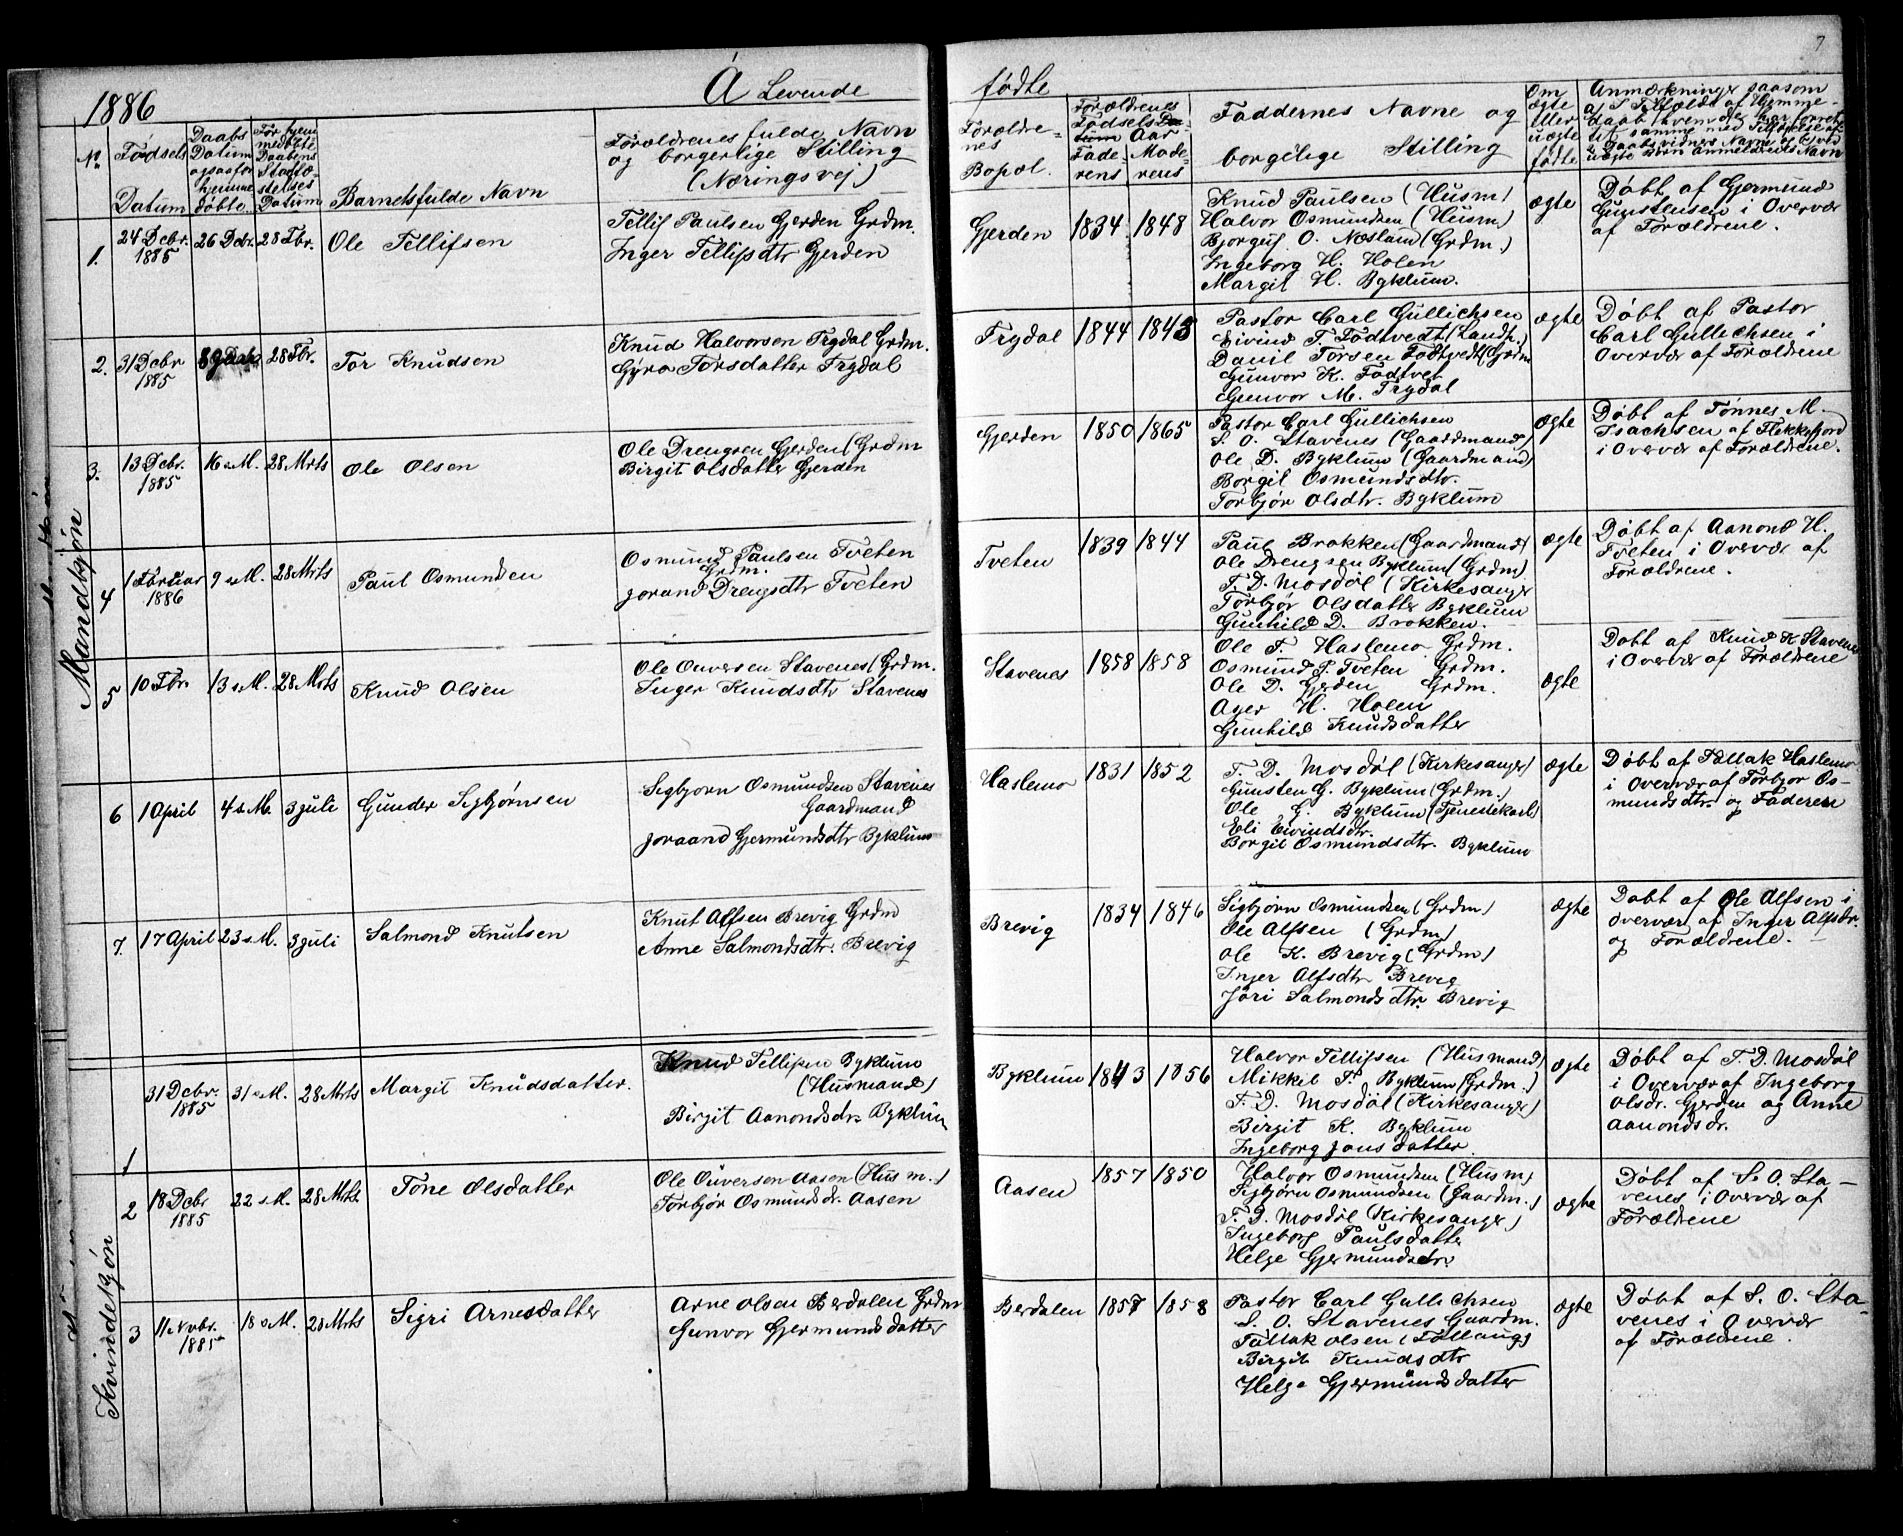 7
1886
A Levende
fødte
No.
Fødsels
Datum
Daabs
Datum
ogsaa for
hjemme
døbte
For hjem
medøbte
Daabens
Stadfæ-
stelses
Datum
Barnets fulde Navn
Forældrenes fulde Navn
og borgerlige Stilling
(Næringsvej)
Forældre-
nes
Bopæl.
Forældrenes
Fødsels Da-
tum Aar
Fade-
rens
Mode-
rens
Faddernes Navne og
borgelige Stilling
Om
ægte
eller
uægte
fødte
Anmærkninger saasom
Mandkjøn
1.
24 Debr.
1885
26 Debr.
28 Fbr.
Ole Tellifsen
Tellif Paulsen Gjerden Grdm.
Inger Tellifsdtr Gjerden
Gjerden
1834
1848
Knud Paulsen (Husm)
Halvor Osmundsen (Husm)
Bjorguf O. Næslam (Grdm.)
Ingeborg H. Holen
Margit H. Byklum.
ægte
Døbt af Gjermund
Gunstensen i Overvær
af Forældrene.
2.
31 Debr
1885
28 Fbr.
Tor Knudsen
Knud Halvorsen Trydal Grdm.
Gyro Torsdatter Trydal
Trydal
1844
1843
Pastor Carl Gullichsen
Eivind T. Fodtvedt (Landh.)
Danil Torsen Fodtvedt (Grdm
Gunvor K. Fodtvet
Gunvor M. Trydal
ægte
Døbt af Pastor
Carl Gullichsen i
Overvær af Foroldrene
3.
13 Debr.
1885
16 s.M.
28 Mrts
Ole Olsen
Ole Drengsen Gjerden (Grdm
Birgit Olsdatter Gjerden
Gjerden
1850
1865
Pastor Carl Gullichsen
S. O. Stavenes (Gaardmand)
Ole D. Byklum (Gaardmand)
Borgil Osmundsdtr.
Torbjør Olsdtr. Byklum
ægte
Døbt af Tønnes M.
Isachsen af Flekkefjord
i Overvær af Forældrene.
4
1 Februar
1886
9 s.M.
28 Mrts
Paul Osmundsen
Osmund Paulsen Tveten
Grdm.
Jorand Drengsdtr Tveten
Tveten
1839
1844
Paul Brokken (Gaardmand)
Ole Drengsen Byklum (Grdm)
T. D. Mosdøl (Kirkesanger
Torbjør Olsdatter Byklum
Gunhild D. Brokken.
ægte
Døbt af Aanond H.
Tveten i Overvær af
Forældrene.
5
10 Fbr.
13 s.M.
28 Mrts
Knud Olsen
Ole Ouversen Stavenes (Grdm.
Inger Knudsdtr Stavenes
Stavenes
1858
1858
Ole T. Haslemo Grdm.
Osmund P. Tveten Grdm.
Ole D. Gjerden Grdm.
Ager H. Holen
Gunhild Knudsdatter
ægte
Døbt af Knud K Stavenes
i Overvær af Forældrene
6
1 April
4 s.M.
3 juli
Gunder Sigbjørnsen
Sigbjorn Osmundsen Stavenes
Gaardmand
Joraand Gjermundsdtr Byklum
Haslemo
1831
1852
T. D. Mosdøl (Kirkesanger)
Gunsten G. Byklum (Grdm.)
Ole G. Byklum (Tjenestekarl)
Eli Eivindsdtr.
Borgil Osmundsdtr. Byklum
ægte
Døbt af Tallak Haslemo
i Overvær af Torbjor Os-
mundsdtr og Faderen
7.
17 April
23 s.M.
3 juli
Salmond Knutsen
Knut Alfsen Brevig Grdm
Anne Salmondsdtr. Brevig
Brevig
1834
1846
Sigbjørn Osmundsen (Grdm)
Ole Alfsen (Grdm)
Ole K. Brevig (Grdm)
Inger Alfsdtr Brevig
Jøri Salmondsdtr. Brevig
ægte
Døbt af Ole Alfsen i
overvær af Inger Alfsdr.
og Forældrene.
Kvindekjøn
1
31 Debr.
1885
31 s.M.
28 Mrts
Margit Knudsdatter.
Knud Tellifsen Byklum
(Husmand)
Birgit Aanondsdr. Byklum
Byklum
1843
1856
Halvor Tellifsen (Husmand)
Mikkel P. Byklum (Grdm.)
T. D. Mosdøl (Kirkesanger)
Birgit K. Byklum
Ingeborg Jonsdatter.
ægte
Døbt af T. D. Mosdøl
i Overvær af Ingeborg
Olsdr. Gjerden og Anne
Aanondsdr.
2
18 Debr
1885
22 s.M.
28 Mrts
Tone Olsdatter
Ole Ouversen Aasen (Husm.)
Torbjør Osmundsdr. Aasen
Aasen
1857
1850
Halvor Osmundsen (Husm)
Sigbjørn Osmundsen (Gaardm.)
T. D. Mosdøl Kirkesanger)
Ingeborg Paulsdatter
Helge Gjermundsdr.
ægte
Døbt af S. O. Sta-
venes i Overvær af
Forældrene
3
11 Novbr.
1885
18 s.M.
28 Mrts
Sigri Arnesdatter
Arne Olsen Berdalen Grdm
Gunvor Gjermundsdatter
Berdalen
1857
1858
Pastor Carl Gullichsen
S. O. Stavenes Gaardm.
Tallak Olsen
Birgit Knudsdtr
Helge Gjermundsdatter
ægte
Døbt af S. O. Sta-
venes i Overvær
af Forældrene.